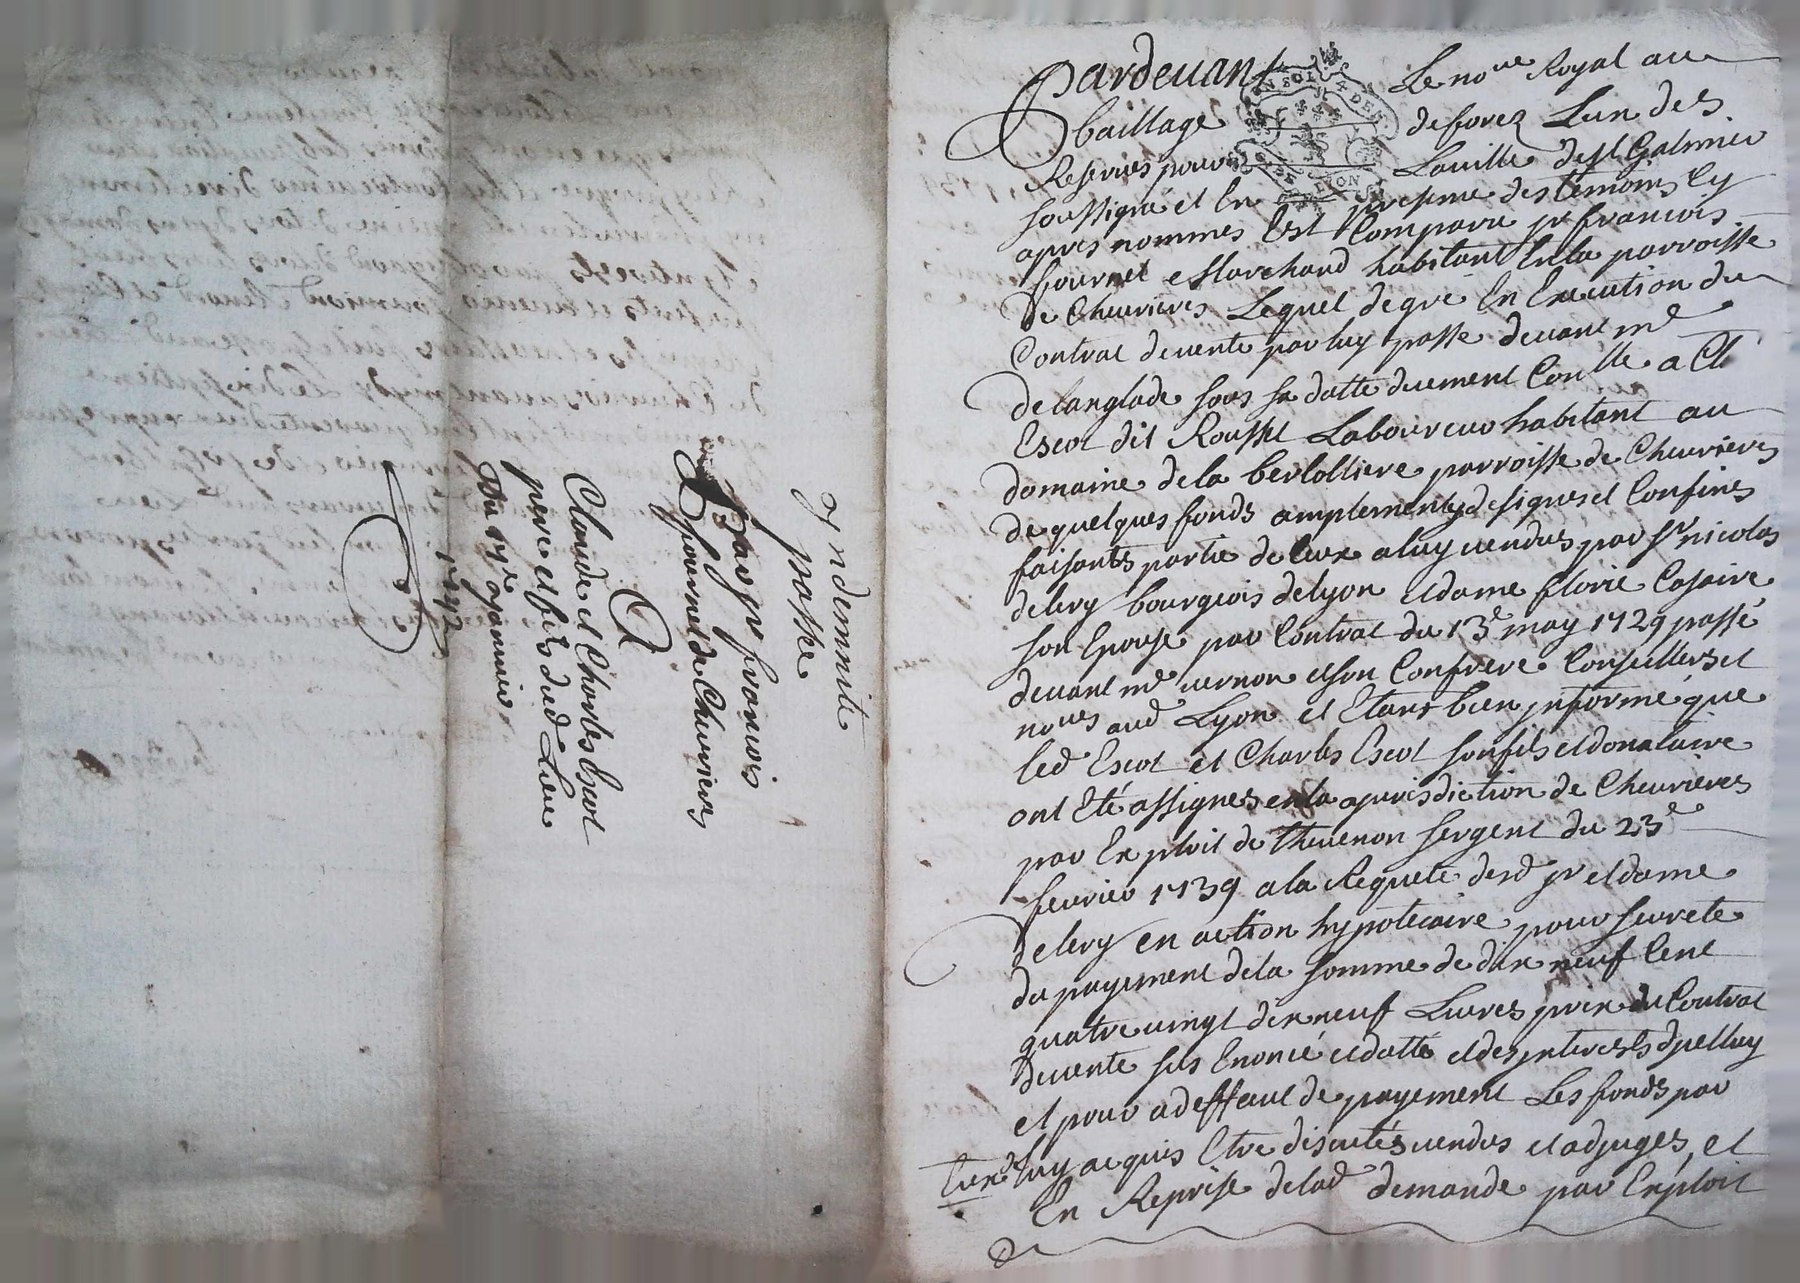 yndemnité
passée
Par sr francois
fournel de Chevrieres
A
Claude et Charles Escot
pere et fils dud. Lieu
Du 17e janvier
1742
Pardevant Le nore Royal au
bailliage de forez Lun des
Reservés pour La ville de st Galmier
soussigné et En presence des temoins Cy
apres nommés Est Comparu sr francois
fournel Marchand habitant En la parroisse
de Chevrieres Lequel de gré En Execution du
Contrat de vente par luy passé devant me
delanglade sous sa datte duement Conllé a Cl.
Escot dit Roussel Laboureur habitant au
domaine de la bertolliere parroisse de Chevrieres
de quelques fonds amplement y designés et Confinés
faisants partie de Ceux a luy vendus par sr nicolas
delery bourgeois de lyon et dame florie Casaire
son Epouse par Contrat du 13e may 1729 passé
devant me vernon et son Confrere Conseillers et
nores aud. Lyon et Etant bien jnformé que
led. Escot et Charles Escot son fils et donataire
ont Eté assignés en la jurisdiction de Chevrieres
par Exploit de thevenon sergent du 23e
fevrier 1739 a la Requete desd. sr et dame
delery en action hypotecaire pour seureté
du payement de la somme de dix neuf Cent
quatre vingt dix neuf Livres prix du Contrat
de vente sus Enoncé et datté et des jnterests dyelluy
et pour a deffaut de payement Les fonds par
Eux luy acquis Etre discutés vendus et adjugés, et
En Reprise de lad. demande par Exploit